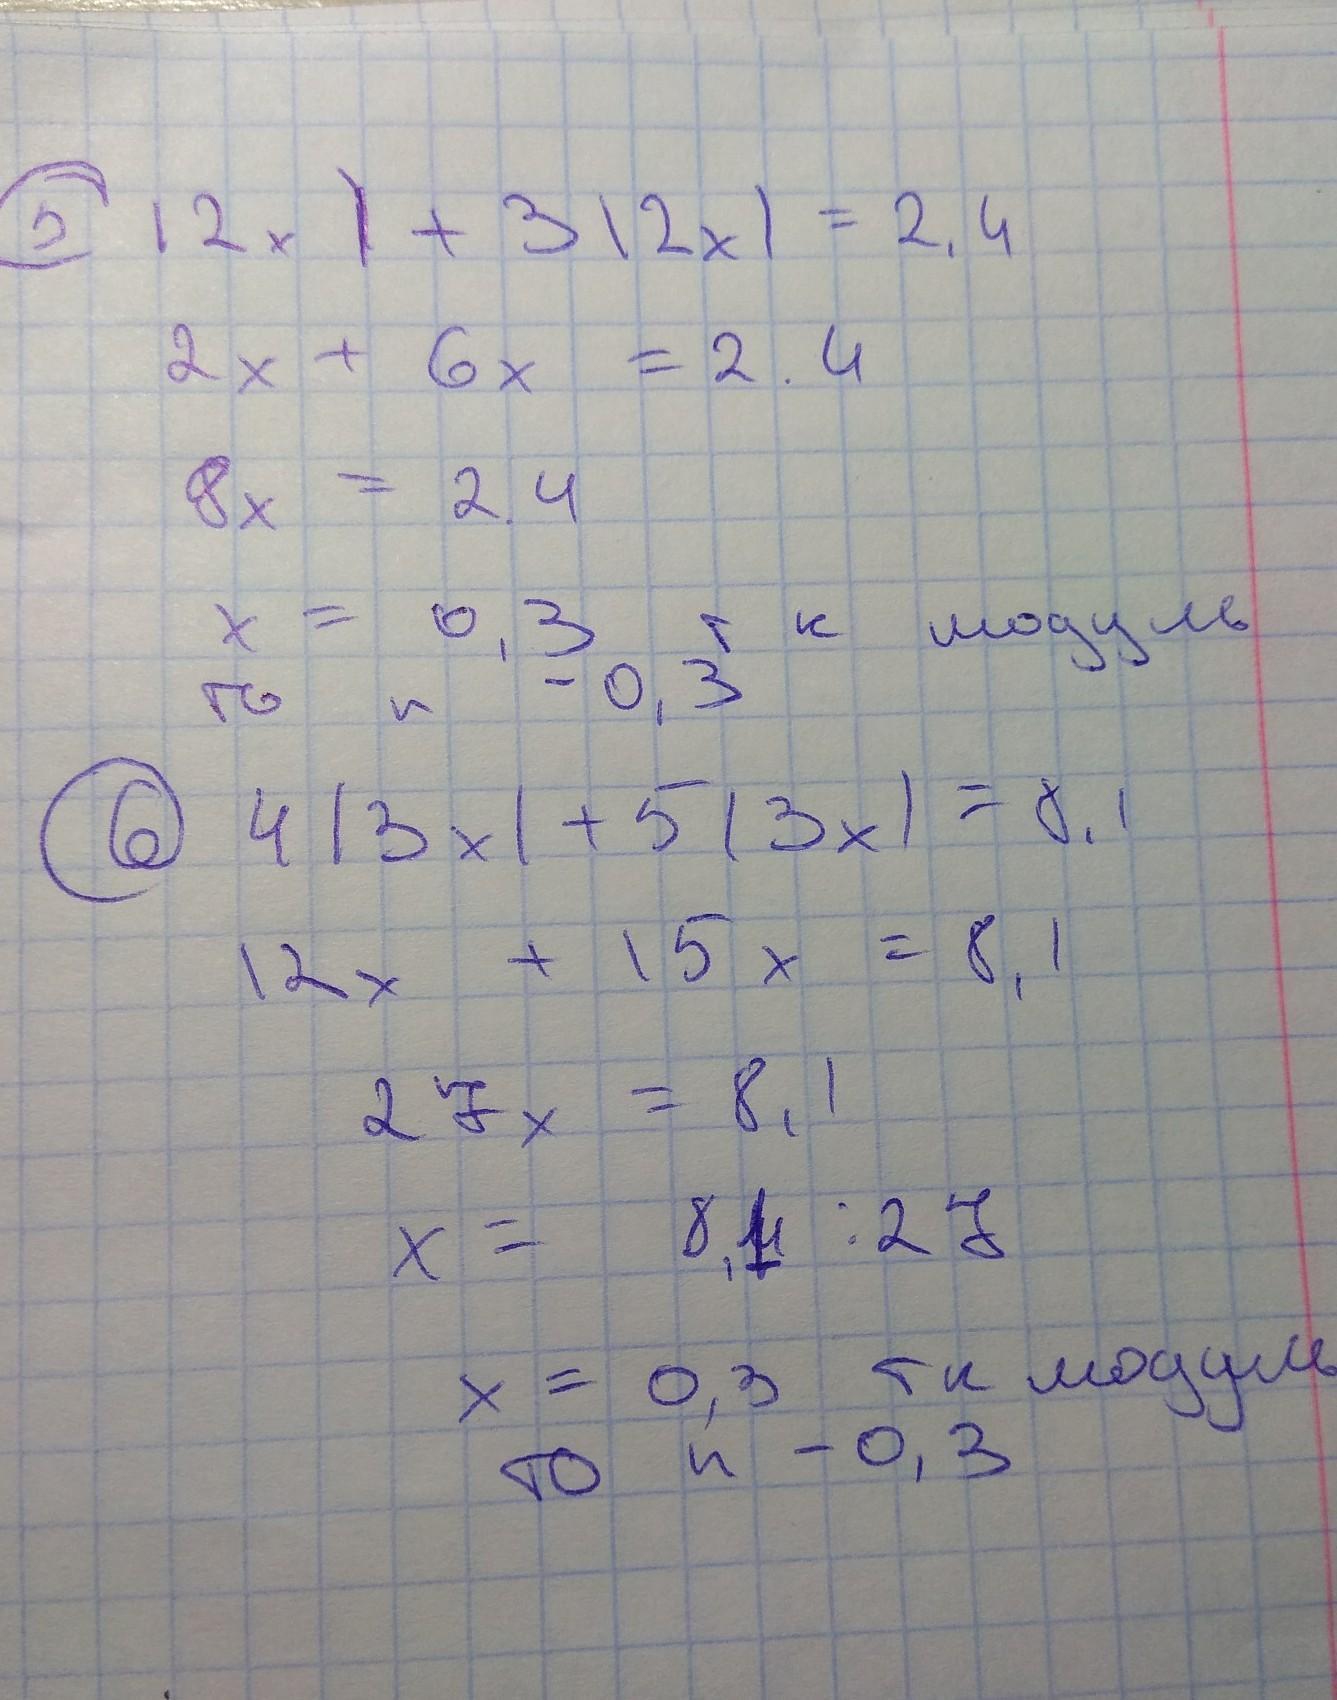 5 |2x| + 3|2x| = 2.4
2x + 6x = 2.4
8x = 2.4
x = 0,3 т к модуль
то и -0,3
6 4|3x| + 5|3x| = 8,1
12x + 15x = 8,1
27x = 8,1
x = 8,1 : 27
x = 0,3 т к модуль
то и -0,3